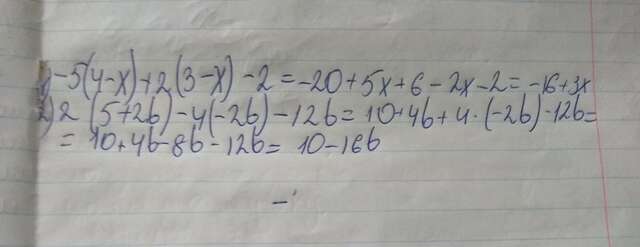 1) -5(4-x)+2(3-x)-2=-20+5x+6-2x-2=-16+3x
2) 2(5+2b)-4(-2b)-12b=10+4b+4·(-2b)-12b=
=10+4b-8b-12b=10-16b